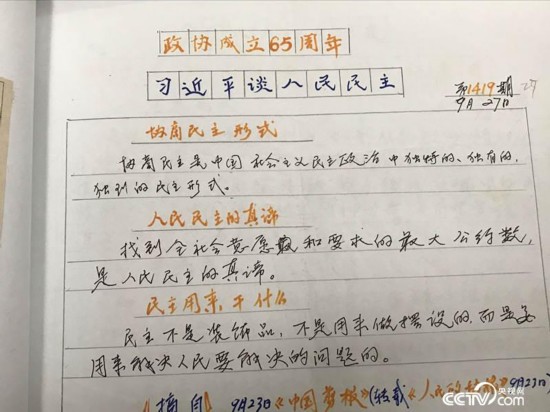 政协成立65周年
习近平谈人民民主
第1419期 27
9月27日
协商民主形式
协商民主是中国社会主义民主政治中独特的、独有的、
独到的民主形式。
人民民主的真谛
找到全社会意愿和要求的最大公约数,
是人民民主的真谛。
民主用来干什么
民主不是装饰品,不是用来做摆设的,而是要
用来解决人民要解决的问题的。
摘自 9月23日《中国剪报》(转载《人民
9月23日
央视网
CCTV.com